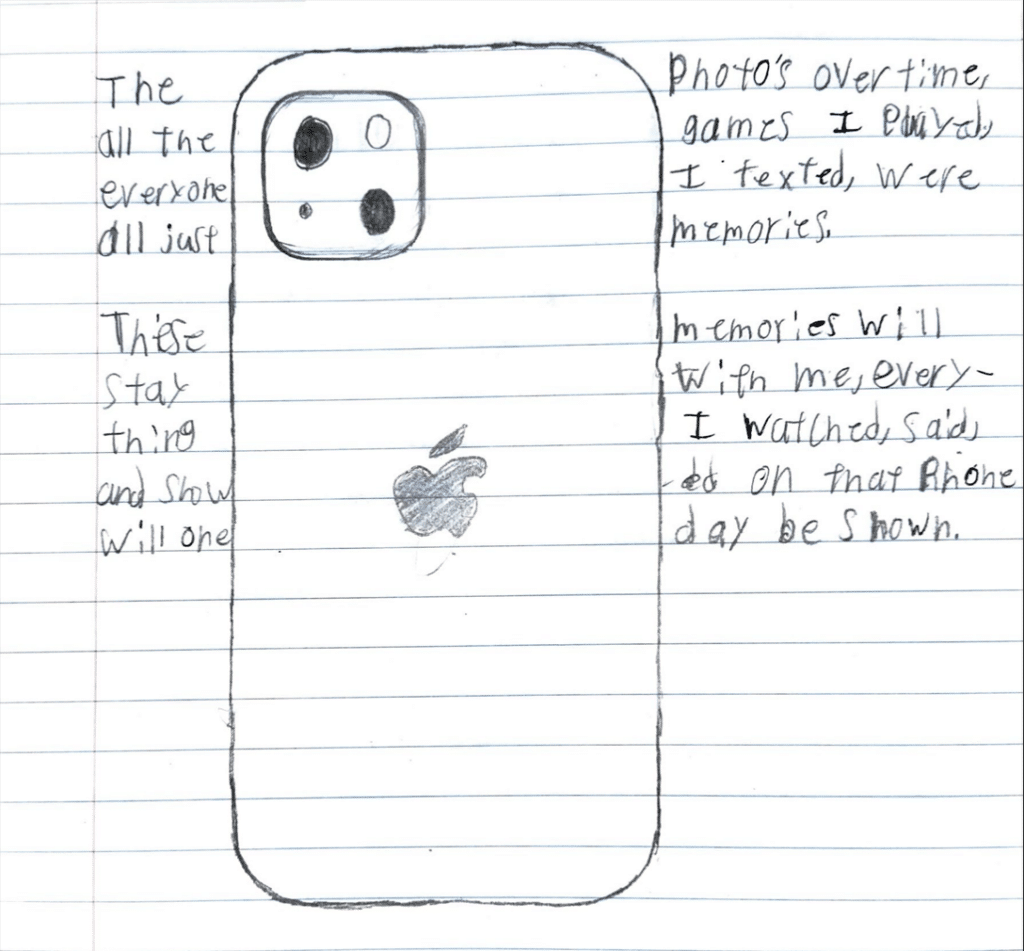 The photo's over time,
all the games I played,
everyone I texted, were
all just memories.
These memories will
stay with me, every-
thing I watched, said,
and show-ed on that Phone
will one day be shown.